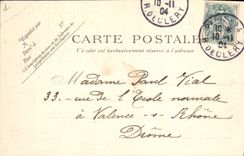 10-11
04
R. DECLERY
10-11
04
R. DECLERY
CARTE POSTALE
Ce côté est exclusivement réservé à l'adresse
Madame Paul Vial
33 - rue de l'Ecole normale
à Valence - s - Rhône
Drôme